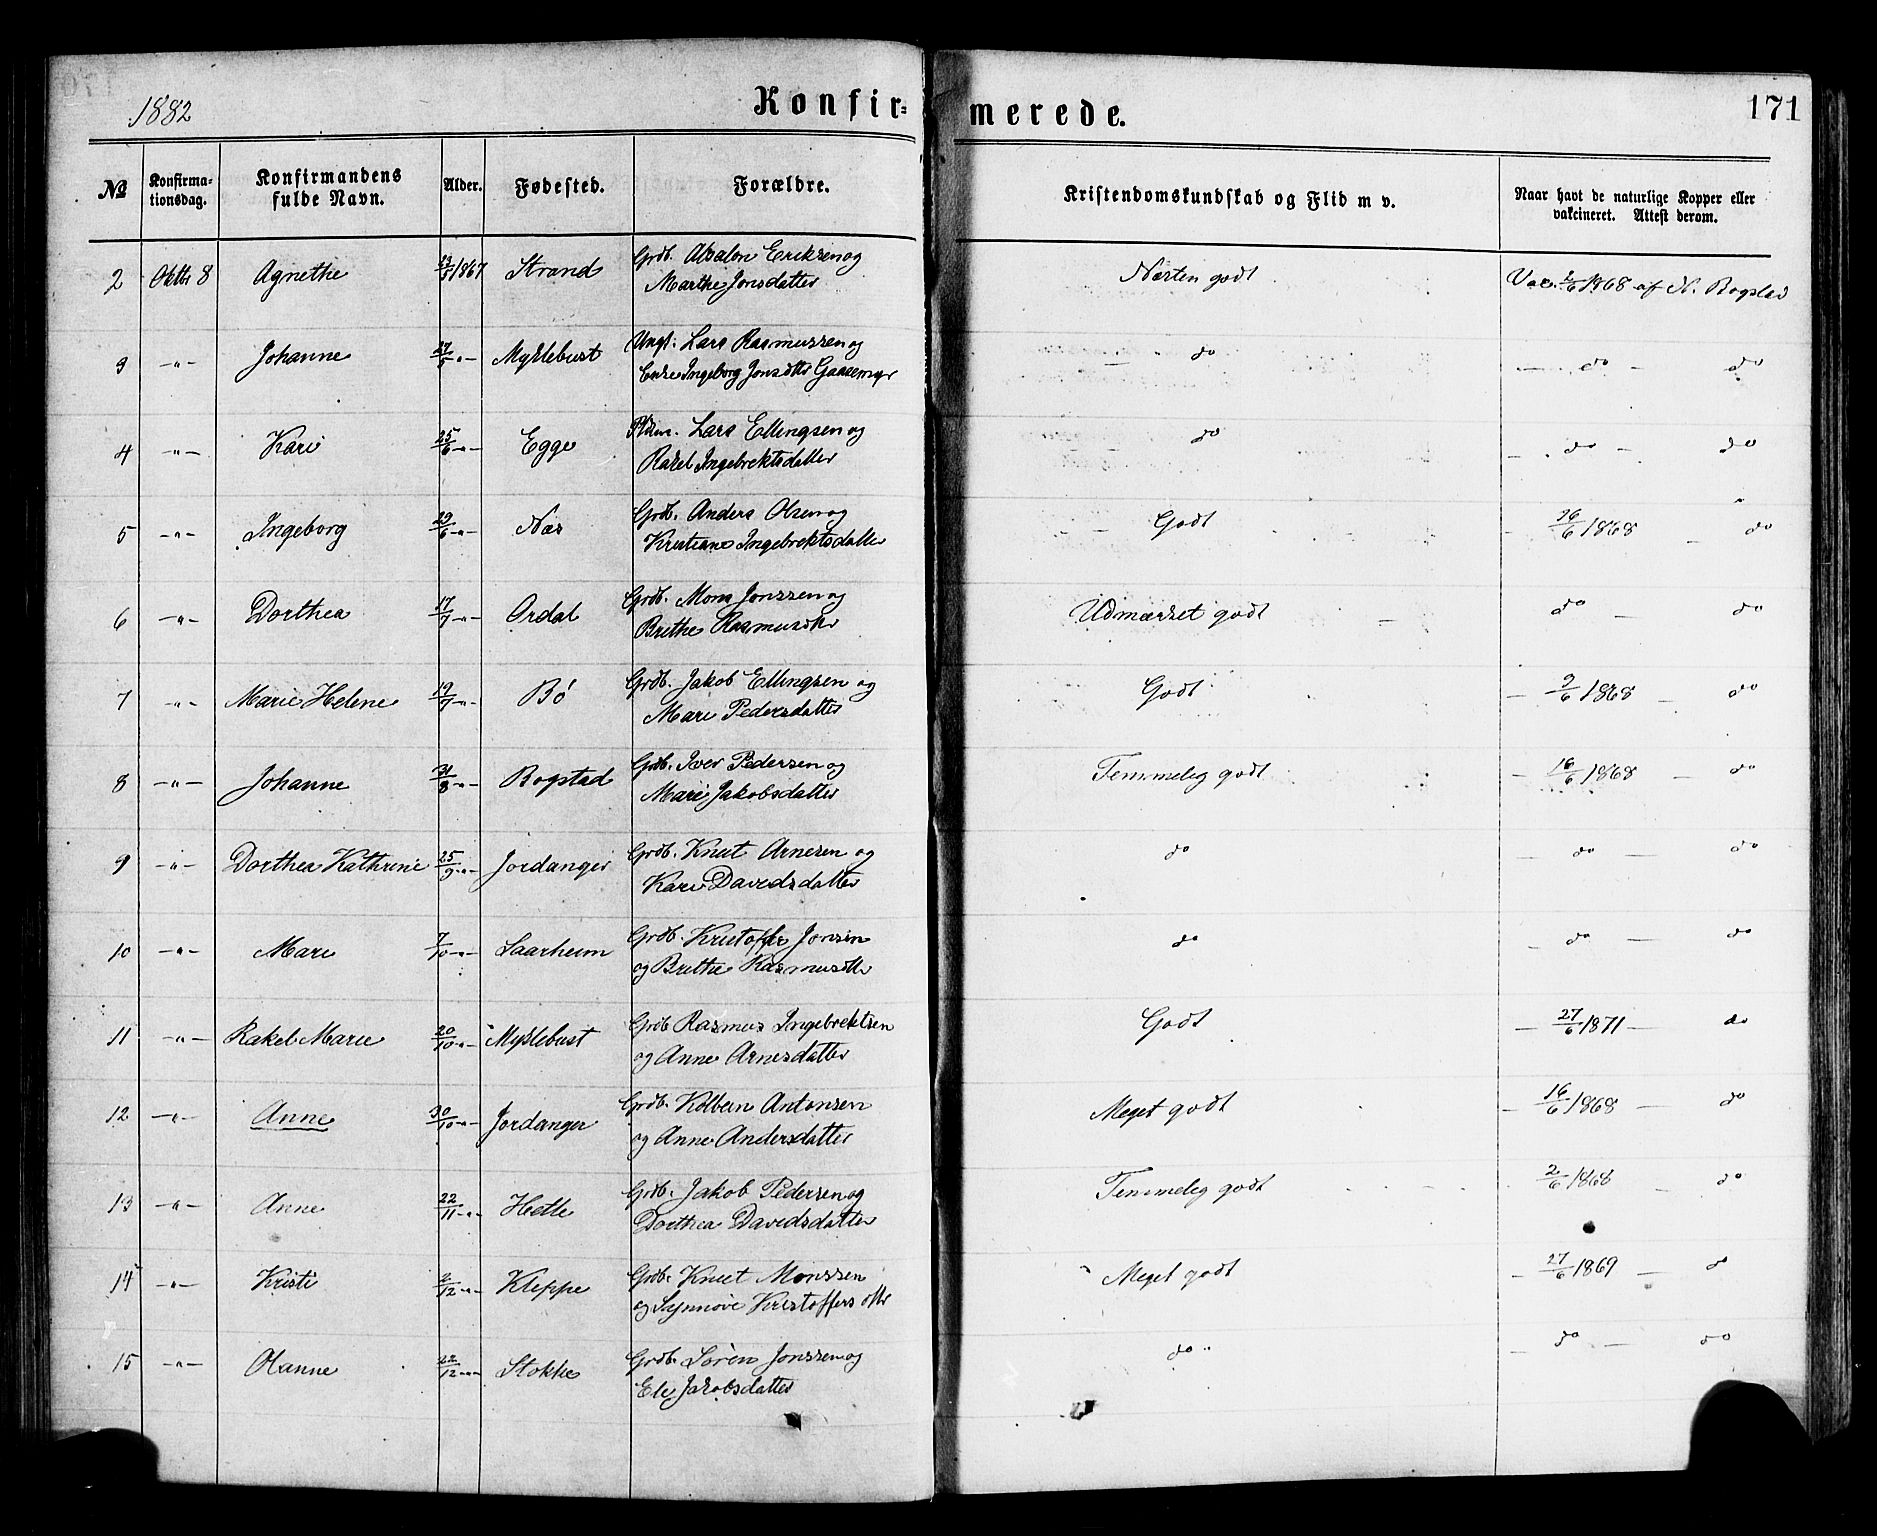 1882 Konfirmerede. 171
№ Konfirmationsdag. Konfirmandens fulde Navn. Alder. Fødested. Forældre. Kristendomskundskab og Flid m v. Naar havt de naturlige Kopper eller vakcineret. Attest derom.
2 Oktbr 8 Agnethe 1867 Strand Grdb. Absalon Eriksen og Marthe Jonsdatter Næsten godt Vac. 2/6 1868 af N. Rogstad
3 -"- Johanne 27/5 -"- Myklebust Ungk. Lars Rasmussen og Enke Ingeborg Jonsdttr Gaasemyr do - do - do
4 -"- Kari 25/6 -"- Egge Lars Ellingsen og Rakel Ingebrektsdatter do - do - do
5 -"- Ingeborg 29/6 -"- Nes Grdb. Anders Olsen og Kristiane Ingebrektsdatter Godt - 16/6 1868 - do
6 -"- Dorthea 17/7 -"- Ordal Grdb. Mons Jonssen og Brithe Rasmusdtr Udmærket godt do - do
7 -"- Marie Helene 19/7 -"- Bö Grdb. Jakob Ellingsen og Mari Pedersdatter Godt - 9/6 1868 - do
8 -"- Johanne 31/8 -"- Rogstad Grdb. Iver Pedersen og Mari Jakobsdatter Temmelig godt - 16/6 1868 - do
9 -"- Dorthea Kathrine 25/9 -"- Jordanger Grdb. Knut Arnesen og Kari Davidsdatter do - do - do
10 -"- Mari 7/10 -"- Saarheim Grdb. Kristoffer Jonsen og Brithe Rasmusdtr do - do - do
11 -"- Rakel Marie 20/10 -"- Myklebust Grdb Rasmus Ingebrektsen og Anne Arnesdatter Godt - 27/6 1871 - do
12 -"- Anne 30/10 -"- Jordanger Grdb. Kolbein Antonsen og Anne Andersdatter Meget godt - 16/6 1868 - do
13 -"- Anne 22/11 -"- Hetle Grdb. Jakob Pedersen og Dorthea Davidsdatter Temmelig godt 2/6 1868 - do
14 -"- Kristi 2/12 -"- Kleppe Grdb. Knut Monssen og Synnöve Kristoffersdttr Meget godt - 27/6 1869 - do
15 -"- Olanne 22/12 -"- Stokke Grdb. Sören Jonssen og Eli Jakobsdatter do - do - do